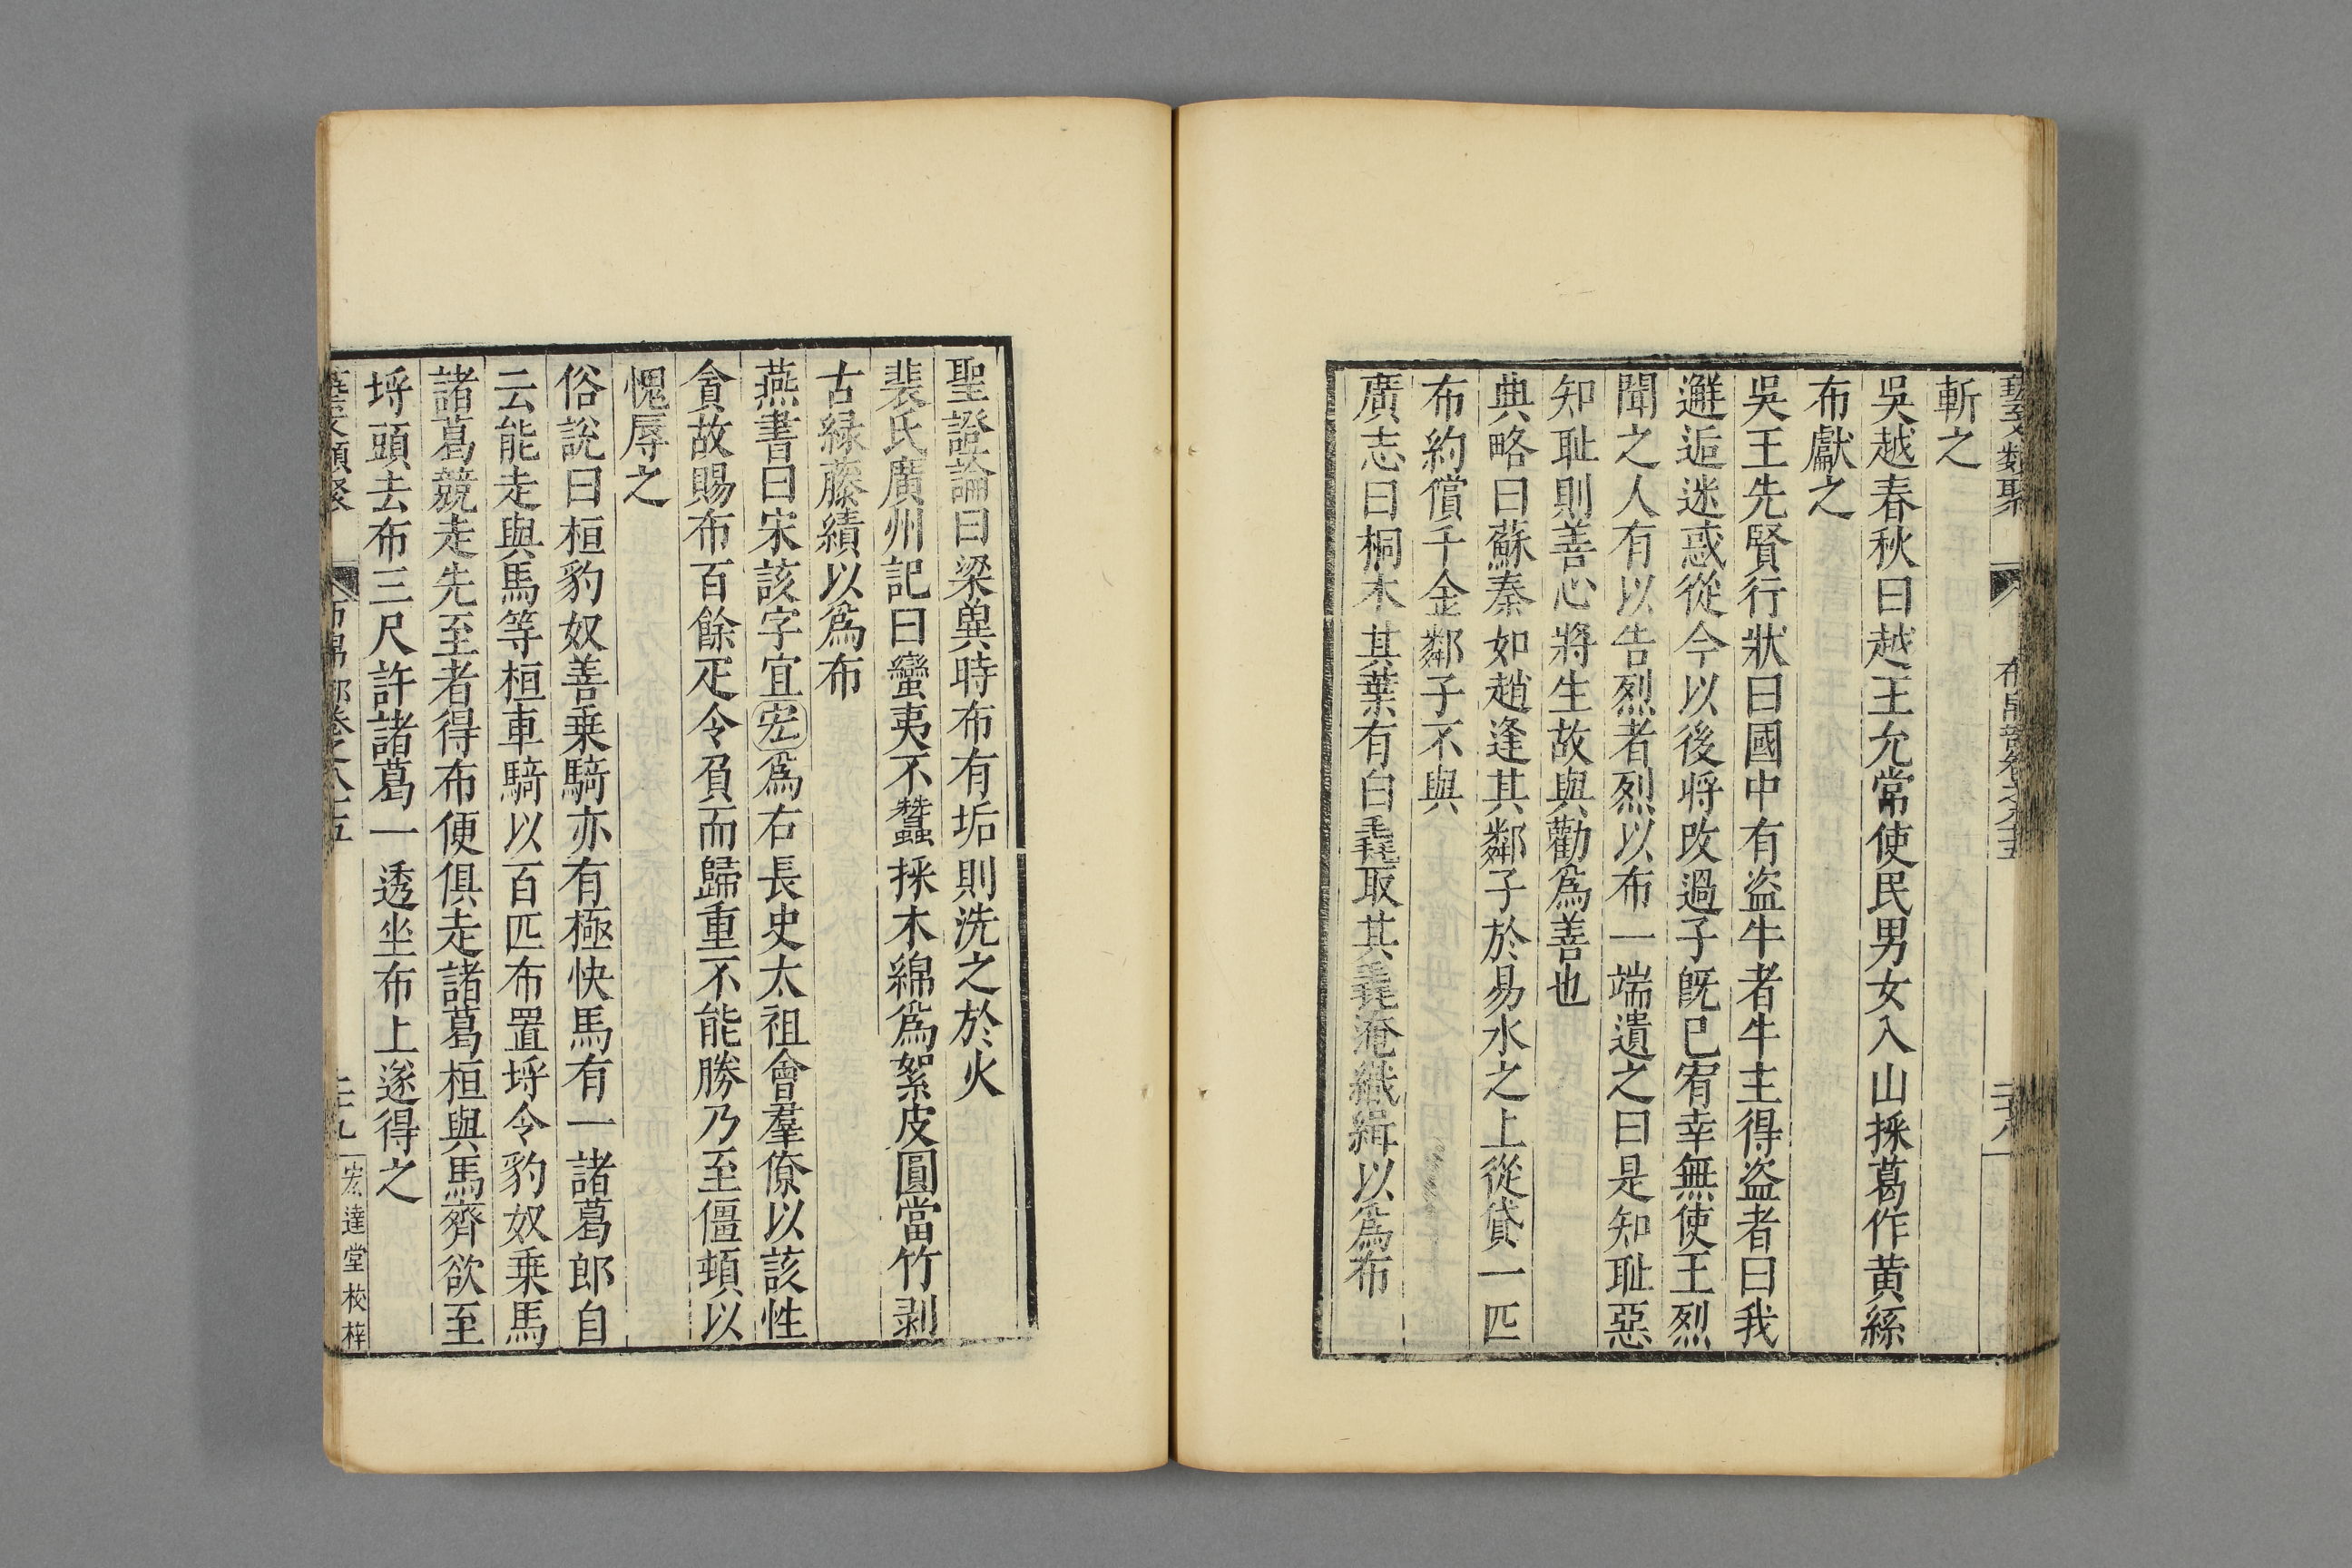 藝文類聚 布帛部卷之八十五 三十八
斬之
吳越春秋曰越王允常使民男女入山採葛作黃絲
布獻之
吳王先賢行狀曰國中有盜牛者牛主得盜者曰我
邂逅迷惑從今以後將改過子旣已宥幸無使王烈
聞之人有以告烈者烈以布一端遺之曰是知耻惡
知耻則善心將生故與勸爲善也
典略曰蘇秦如趙逢其鄰子於易水之上從貸一匹
布約償千金鄰子不與
廣志曰桐木其葉有白毳取其毳淹織緝以爲布
聖證論曰梁兾時布有垢則洗之於火
裴氏廣州記曰蠻夷不蠶採木綿爲絮皮圓當竹剥
古緑藤績以爲布
燕書曰宋該字宜宏爲右長史太祖會羣僚以該性
貪故賜布百餘疋令負而歸重不能勝乃至僵頓以
愧辱之
俗說曰桓豹奴善乗騎亦有極快馬有一諸葛郎自
云能走與馬等桓車騎以百匹布置埓令豹奴乗馬
諸葛競走先至者得布便俱走諸葛桓與馬齊欲至
埓頭去布三尺許諸葛一透坐布上遂得之
藝文類聚 布帛部卷之八十五 三十九 宏達堂校梓